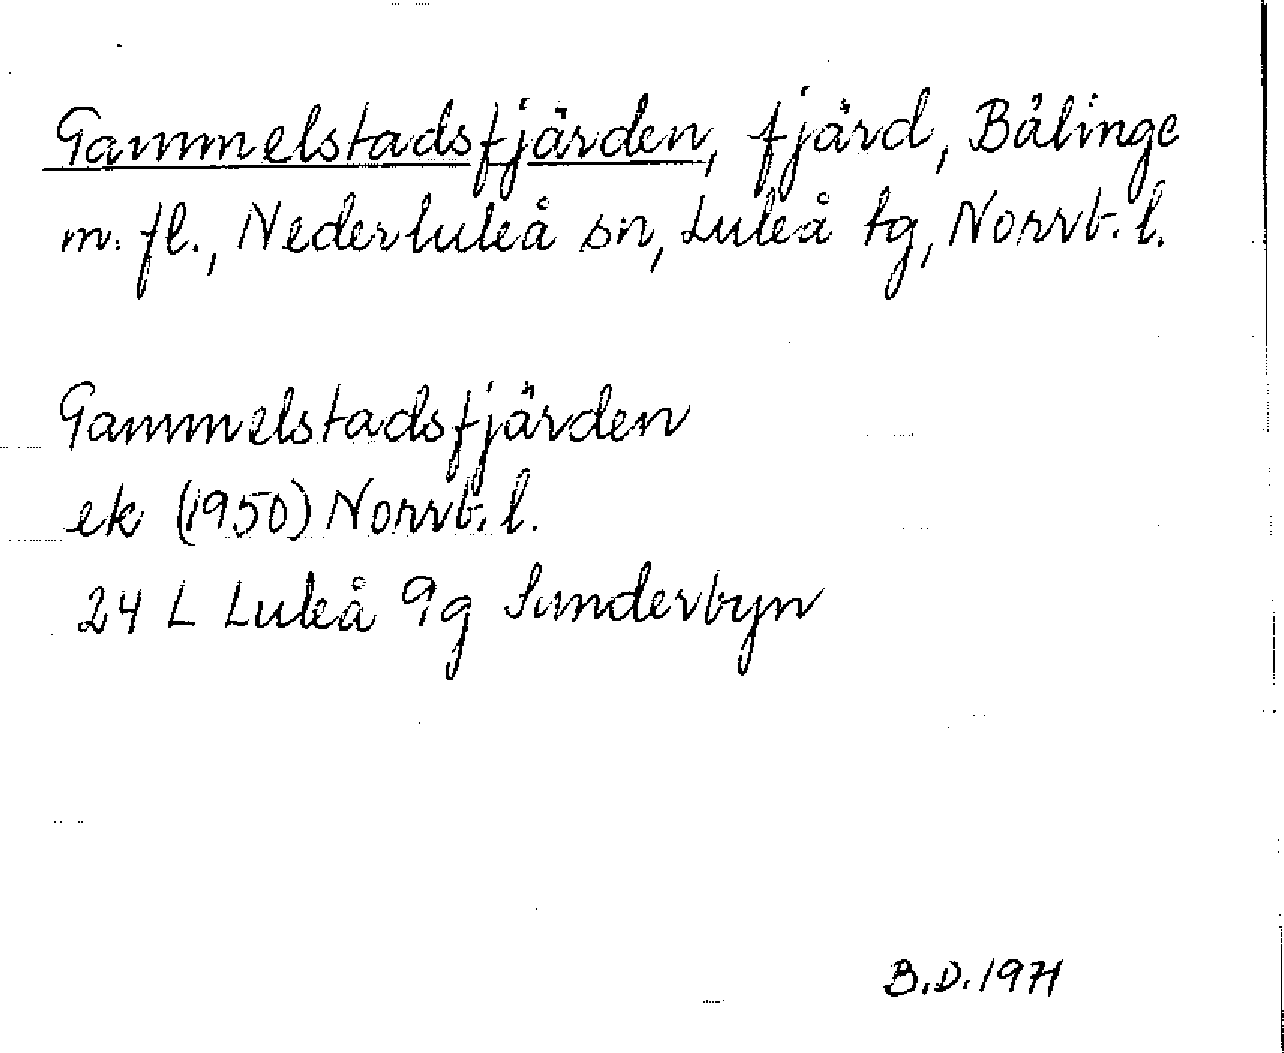 Gammelstadsfjärden, fjärd, Bälinge
m. fl., Nederluleå sn, Luleå tg, Norrb. l.
Gammelstadsfjärden
ek (1950) Norrb. l.
24 L Luleå 9g Sunderbyn
B.D. 1971